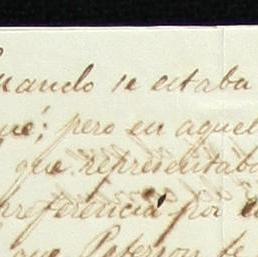 Cuando se estaba
que; pero en aquel
que representaba
preferencia por
que Peterson de